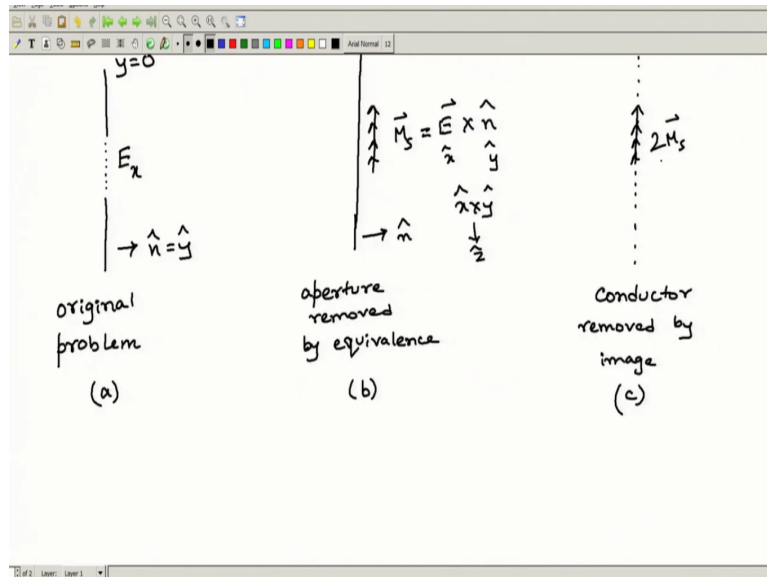 Arial Normal 12
y=0
Eₓ
→ n̂ = ŷ
original
problem
(a)
M⃗ₛ = E⃗ × n̂
x̂ ŷ
x̂×ŷ
↓
ẑ
→ n̂
aperture
removed
by equivalence
(b)
2M⃗ₛ
conductor
removed by
image
(c)
of 2 Layer: Layer 1